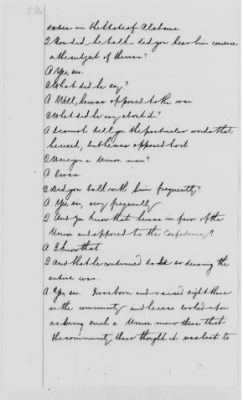 states in the State of Alabama
Q How did he talk – did you hear him converse
on the subject of the war?
A Yes, sir.
Q What did he say?
A Well, he was opposed to the war
Q What did he say about it?
A I cannot tell you the particular words that
he used, but he was opposed to it
Q Were you a Union man?
A I was
Q Did you talk with him frequently?
A. Yes sir, very frequently
Q And you know that he was in favor of the
Union and opposed to the Confederacy?
A I know that
Q And that he continued to be so during the
entire war.
A. Yes sir. I was born and raised right there
in the community and he was looked upon
as being such a Union man there that
the community there thought it was best to